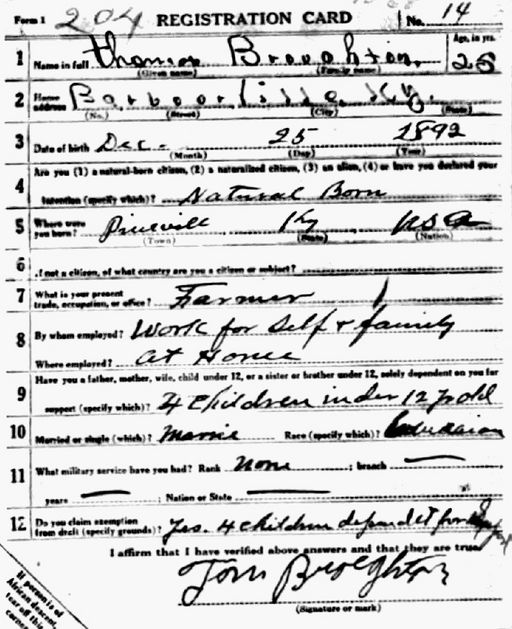 Form 1 204 REGISTRATION CARD No. 14
1 Name in full Thomas Broughton Age, in yrs. 25
(Given name) (Family name)
2 Home address Barboorville, Ky.
(No.) (Street) (City) (State)
3 Date of birth Dec. 25 1892
(Month) (Day) (Year)
4 Are you (1) a natural-born citizen, (2) a naturalized citizen, (3) an alien, (4) or have you declared your
intention (specify which)? Natural Born
5 Where were you born? Pineville Ky USA
(Town) (State) (Nation)
6 If not a citizen, of what country are you a citizen or subject?
7 What is your present trade, occupation, or office? Farmer
8 By whom employed? Work for Self & family
Where employed? at Home
9 Have you a father, mother, wife, child under 12, or a sister or brother under 12, solely dependent on you for
support (specify which)? 4 Children under 12 y old
10 Married or single (which)? Marrie Race (specify which)?
11 What military service have you had? Rank None ; branch
years ; Nation or State
12 Do you claim exemption from draft (specify grounds)? Yes. 4 children for
I affirm that I have verified above answers and that they are true
Tom Broughton
(Signature or mark)
If person is of
African descent,
tear off this
corner